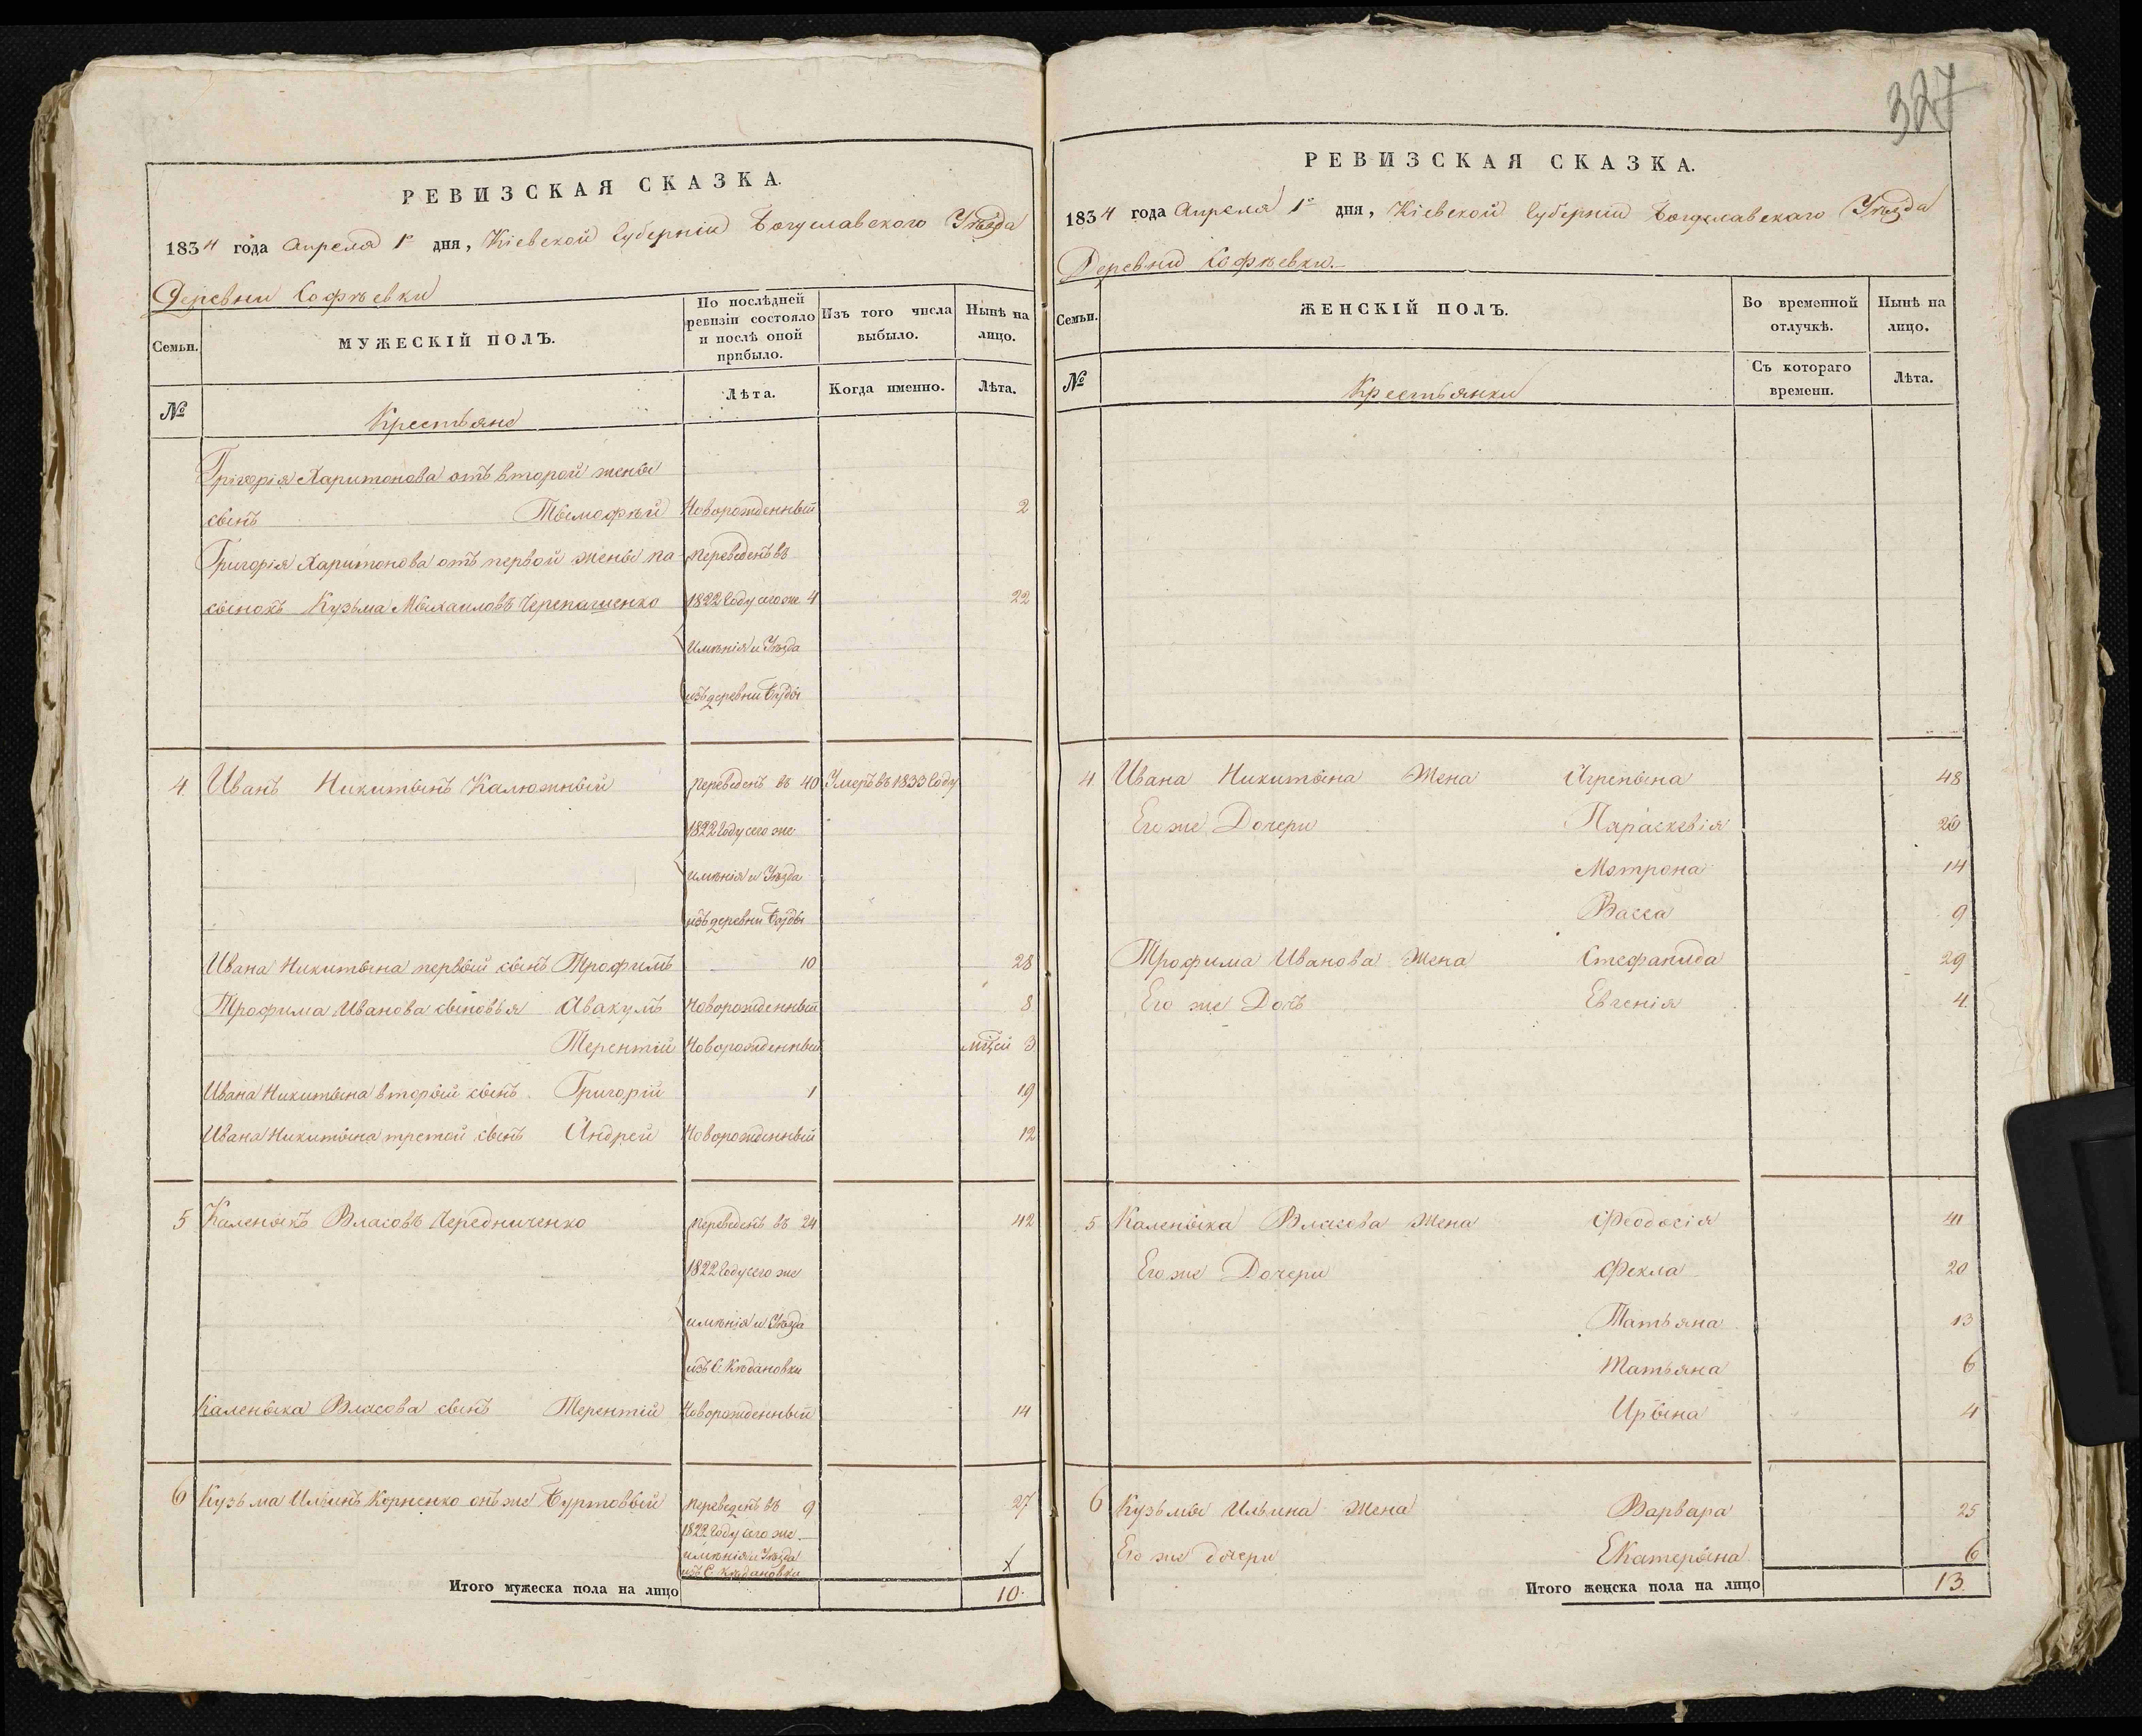 РЕВИЗСКАЯ СКАЗКА.
1834 года Апреля 1го дня, Кіевской Губерніи Богуславского Уѣзда
Деревни Софѣевки
Семьи.
МУЖЕСКІЙ ПОЛЪ.
По послѣдней ревизіи состояло и послѣ оной прибыло.
Изъ того числа выбыло.
Нынѣ на лицо.
№
Крестьяне
Лѣта.
Когда именно.
Лѣта.
Грігорія Харитонова отъ второй жены
сынъ Тымофѣй Новорожденный 2
Григорія Харитонова отъ первой жены па переведенъ въ
сынокъ Кузьма Мыхаиловъ Черепашенко 1822 Году сего же 4 22
имѣнія и Уѣзда
изъ деревни Буды
4. Иванъ Никитынъ Калюжный переведенъ въ 40 Умеръ въ 1833 Году
1822 Году сего же
имѣнія и Уѣзда
изъ деревни Буды
Ивана Никитына первый сынъ Трофимъ 10 28
Трофима Иванова сыновья Авакумъ Новорожденный 8
Терентій Новорожденный мцей 3
Ивана Никитына вторый сынъ Григорій 1 19
Ивана Никитына третой сынъ Андрей Новорожденный 12
5 Каленыкъ Власовъ Чередниченко переведенъ въ 24 42
1822 Году сего же
имѣнія и Уѣзда
изъ С. Кѣдановки
Каленыка Власова сынъ Терентій Новорожденный 14
6 Кузьма Ильинъ Корненко онъ же Буртовый переведенъ въ 9 27
1822 Году сего же
имѣнія и Уѣзда
изъ С. Кѣдановки
Итого мужеска пола на лицо 10.
327
РЕВИЗСКАЯ СКАЗКА.
1834 года Апреля 1го дня, Кіевской Губерніи Богуславскаго Уѣзда
Деревни Софѣевки.
Семьи.
ЖЕНСКІЙ ПОЛЪ.
Во временной отлучкѣ.
Нынѣ на лицо.
№
Крестьянки
Съ котораго времени.
Лѣта.
4. Ивана Никитына Жена Агрепына 48
Его же Дочери Параскевія 20
Мотрона 14
Васса 9
Трофима Иванова Жена Стефанида 29
Его же Дочь Евгенія 4.
5 Каленыка Власова Жена Феодосія 41
Его же Дочери Фекла 20
Татьяна 13
Татьяна 6
Ирына 4
6 Кузьмы Ильина Жена Варвара 25
Его же дочери Екатерына 6
Итого женска пола на лицо 13.